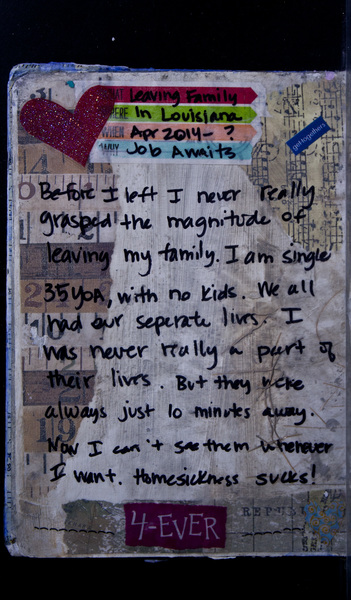 WHAT Leaving Family
WHERE In Louisiana
WHEN Apr 2014- ?
WHY Job Awaits
get-togethers
Before I left I never really
grasped the magnitude of
leaving my family. I am single
35 YOA, with no kids. We all
had our seperate livrs. I
was never really a part of
their livrs. But they weke
always just 10 minutes away.
Now I can't see them whenever
I want. Homesickness sucks!
4-EVER
REPUB